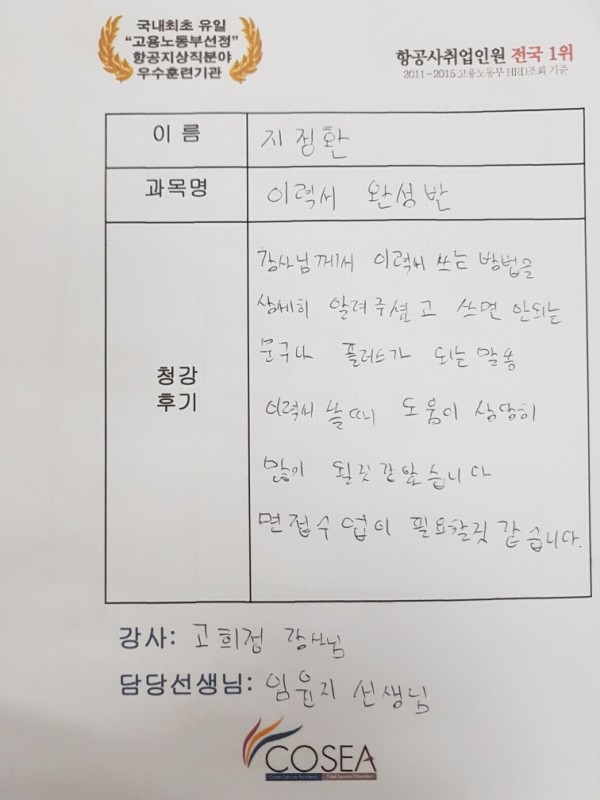 국내최초 유일
“고용노동부선정”
항공지상직분야
우수훈련기관
항공사취업인원 전국 1위
2011-2015 고용노동부 HRD조회 기준
이 름
지정환
과목명
이력서 완성반
청강
후기
강사님께서 이력서 쓰는 방법을
상세히 알려주셨고 쓰면 안되는
문구나 플러스가 되는 말등
이력서 쓸때 도움이 상당히
많이 될것 같았습니다
면접수업이 필요할것 같습니다.
강사: 고희정 강사님
담당선생님: 임윤지 선생님
COSEA
Total Service Education